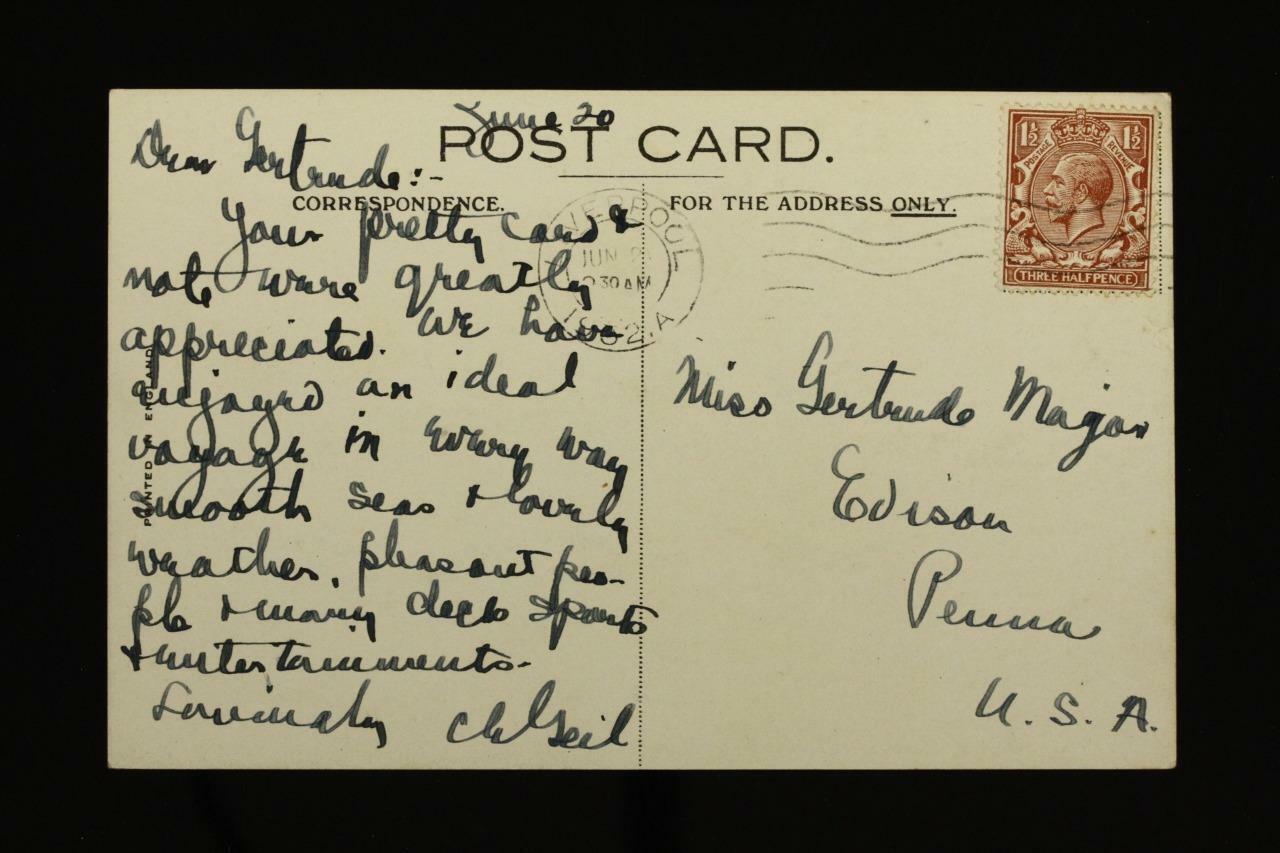 June 20
POST CARD.
Dear Gertrude:-
CORRESPONDENCE.
Your pretty card &
note were greatly
appreciated. We have
enjoyed an ideal
voyage in every way
smooth seas & lovely
weather, pleasant peo-
ple & many deck sports
& entertainments.
Lovingly
Geil
PRINTED IN ENGLAND
FOR THE ADDRESS ONLY.
LIVERPOOL
JUN
30 AM
1½ 1½
POSTAGE REVENUE
THREE HALFPENCE
Miss Gertrude Major
Edison
Penna
U. S. A.